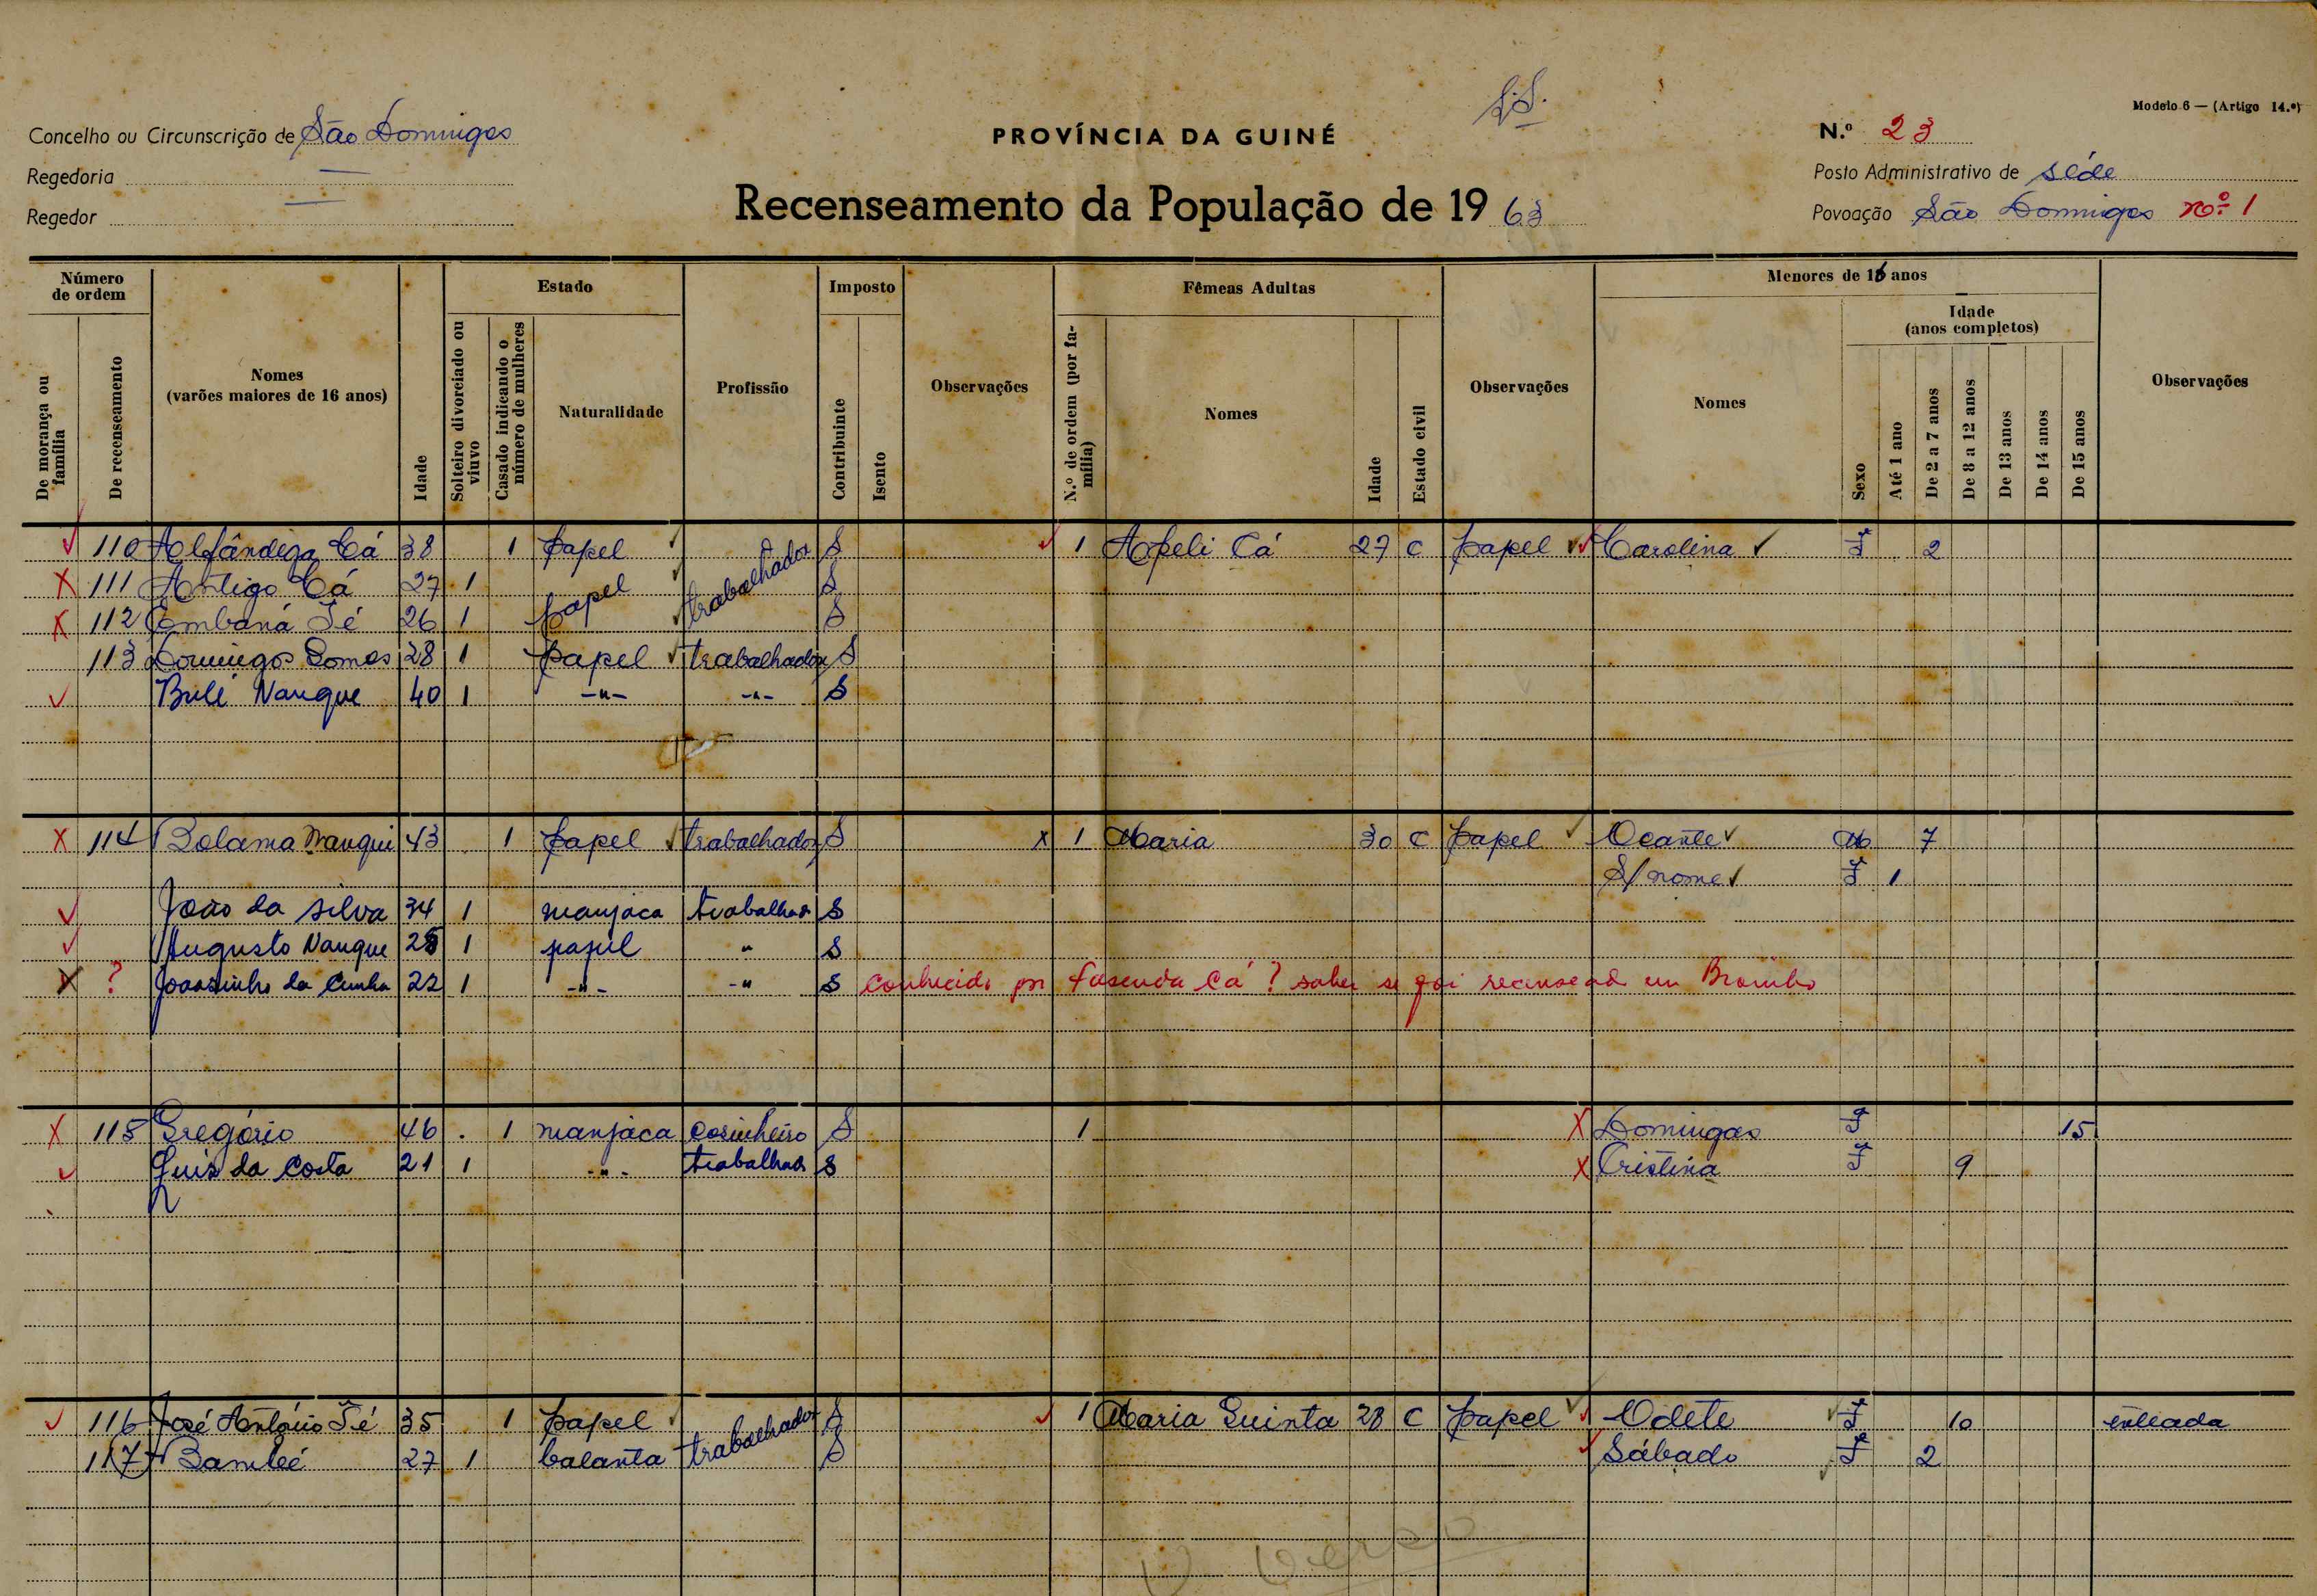 Modelo 6 — (Artigo 14.º)
S.S.
Concelho ou Circunscrição de São Domingos
PROVÍNCIA DA GUINÉ
N.º 23
Regedoria —
Posto Administrativo de séde
Regedor —
Recenseamento da População de 1963
Povoação São Domingos nº 1
Número de ordem
Estado
Imposto
Fêmeas Adultas
Menores de 16 anos
Idade (anos completos)
De morança ou família
De recenseamento
Nomes (varões maiores de 16 anos)
Idade
Solteiro divorciado ou viuvo
Casado indicando o número de mulheres
Naturalidade
Profissão
Contribuinte
Isento
Observações
N.º de ordem (por família)
Nomes
Idade
Estado civil
Observações
Nomes
Sexo
Até 1 ano
De 2 a 7 anos
De 8 a 12 anos
De 13 anos
De 14 anos
De 15 anos
Observações
✓ 110 Alfândega Cá 38 1 papel ✓ S ✓ 1 Apeli Cá 27 C papel ✓ ✓ Carolina ✓ F 2
X 111 Antigo Cá 27 1 papel ✓ trabalhador S
X 112 Embaná Té 26 1 S
113 Domingos Gomes 28 1 papel ✓ trabalhador S
✓ Bulé Nanque 40 1 -"- -"- S
X 114 Bolama Nanqui 43 1 papel ✓ trabalhador S X 1 Maria 30 C papel ✓ Ocante ✓ M 7
S/ nome ✓ F 1
✓ João da Silva 34 1 manjaca trabalhad S
✓ Augusto Nanque 28 1 papel " S
X ? Joãosinho da Cunha 22 1 -"- -" S conhecido por fasenda Cá ? saber se foi recensead em
X 115 Gregório 46 1 manjaca cosinheiro S 1 X Domingas F 15
✓ Luis da Costa 21 1 -"- trabalhad S X Cristina F 9
✓ 116 José António Té 35 1 papel ✓ S ✓ 1 Maria Quinta 28 C papel ✓ ✓ Odete F 10 enteada
117 27 1 balanta trabalhador S ✓ Sábado F 2
V verso